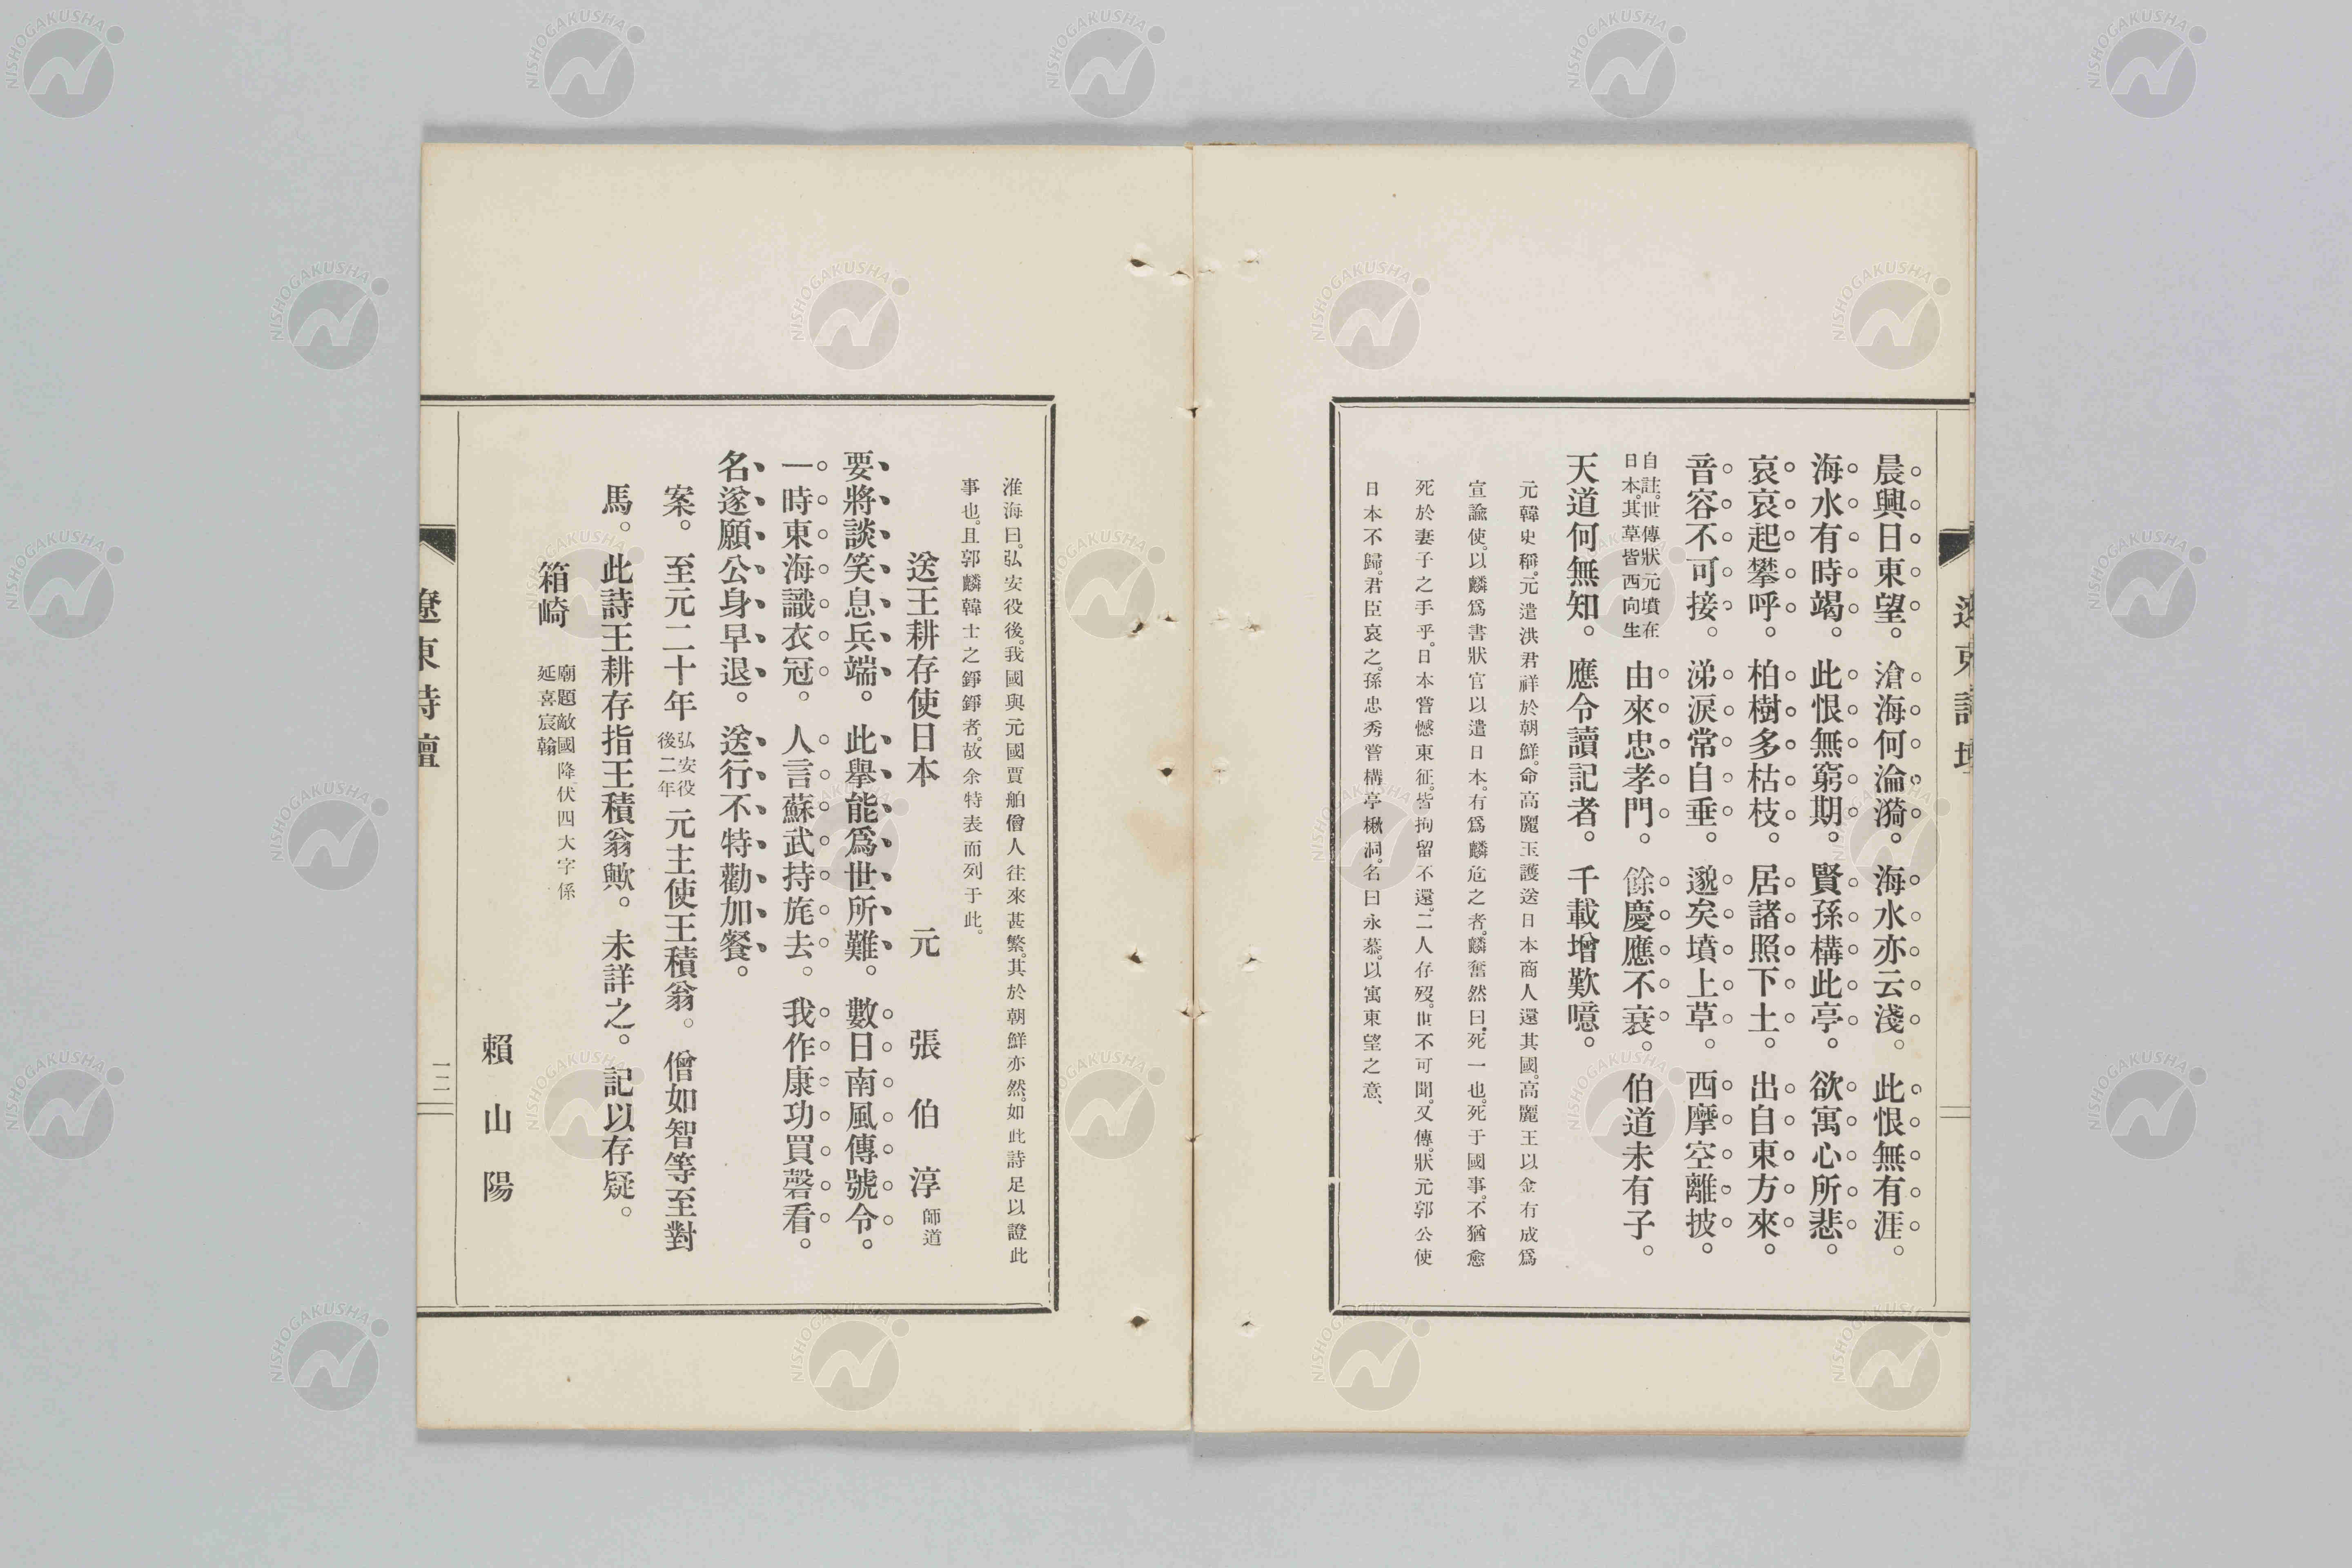 晨興日東望。滄海何淪漪。海水亦云淺。此恨無有涯。
海水有時竭。此恨無窮期。賢孫構此亭。欲寓心所悲。
哀哀起攀呼。柏樹多枯枝。居諸照下土。出自東方來。
音容不可接。涕淚常自垂。邈矣墳上草。西摩空離披。
自註。世傳狀元墳在日本。其草皆西向生 由來忠孝門。餘慶應不衰。伯道未有子。
天道何無知。應令讀記者。千載增歎噫。
元韓史稱。元遣洪君祥於朝鮮。命高麗王護送日本商人還其國。高麗王以金有成爲
宣諭使。以麟爲書狀官以遣日本。有爲麟危之者。麟奮然曰。死一也。死于國事。不猶愈
死於妻子之手乎。日本嘗憾東征。皆拘留不還。二人存歿。世不可聞。又傳。狀元郭公使
日本不歸。君臣哀之。孫忠秀嘗構亭楸洞。名曰永慕。以寓東望之意、
淮海曰。弘安役後。我國與元國賈舶僧人往來甚繁。其於朝鮮亦然。如此詩足以證此
事也。且郭麟韓士之錚錚者。故余特表而列于此。
送王耕存使日本 元 張伯淳 師道
要將談笑息兵端。此擧能爲世所難。數日南風傳號令。
一時東海識衣冠。人言蘇武持旄去。我作康功買罄看。
名遂願公身早退。送行不特勸加餐。
案。至元二十年 弘安役後二年 元主使王積翁。僧如智等至對
馬。此詩王耕存指王積翁歟。未詳之。記以存疑。
箱崎 廟題敵國降伏四大字係延喜宸翰
賴山陽
遼東詩壇
一二
NISHOGAKUSHA